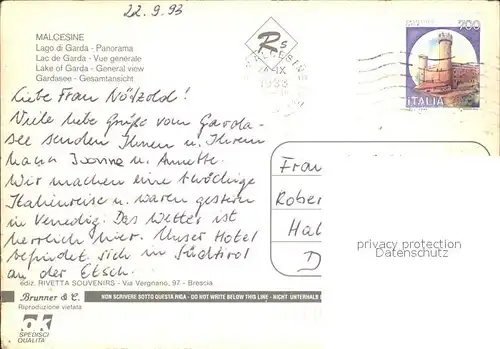 22.9.93
MALCESINE
Lago di Garda - Panorama
Lac de Garda - Vue generale
Lake of Garda - General view
Gardasee - Gesamtansicht
Rs
IX
700
ITALIA
Liebe Frau Nötzold!
Viele liebe Grüße vom Garda-
see senden Ihnen u. Ihrem
Ivonne u. Annette.
Wir machen eine
Italienreise u. waren gestern
in Venedig. Das Wetter ist
herrlich hier. Unser Hotel
befindet sich in Südtirol
an der Etsch.
Frau
Rober
Hal
D
privacy protection
Datenschutz
ediz. RIVETTA SOUVENIRS - Via Vergnano, 97 - Brescia
Brunner & C.
Riproduzione vietata
NON SCRIVERE SOTTO QUESTA RIGA - DO NOT WRITE BELOW THIS LINE - NICHT UNTERHALB
SPEDISCI
QUALITÀ